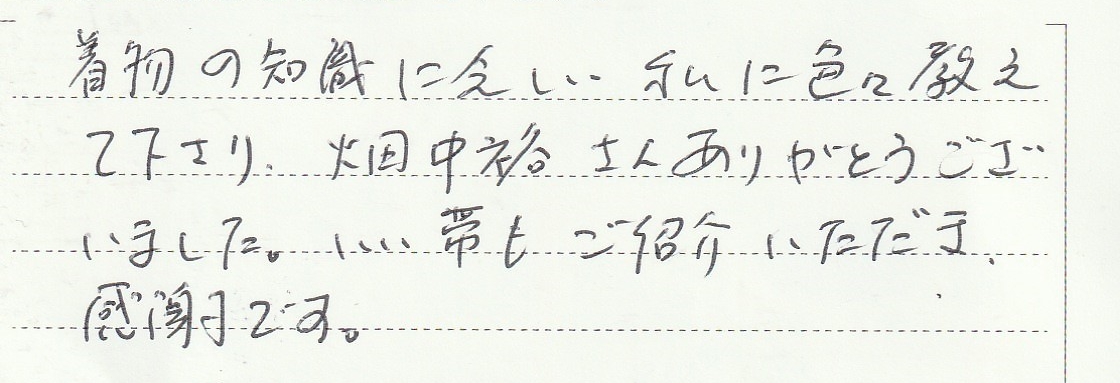 着物の知識に乏しい私に色々教え
て下さり、畑中裕さんありがとうござ
いました。いい帯もご紹介いただき、
感謝です。